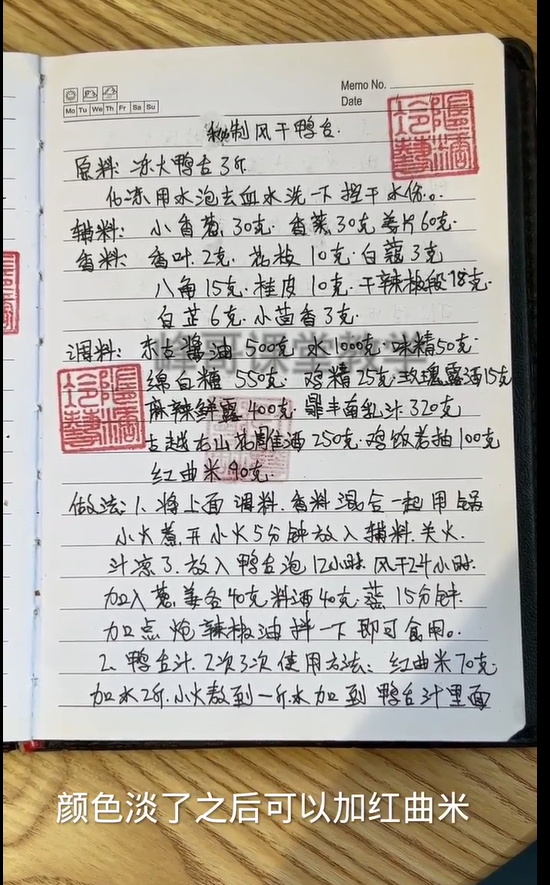 Memo No.
Date
Mo Tu We Th Fr Sa Su
秘制风干鸭舌.
原料: 冻大鸭舌3斤
化冻用水泡去血水洗一下控干水份。
辅料: 小香葱30克·香菜30克姜片60克·
香料: 香叶2克·花枝10克·白蔻3克
八角15克·桂皮10克·干辣椒段18克·
白芷6克·小茴香3克·
调料: 东古酱油500克·水1000克·味精50克·
绵白糖550克·鸡精25克·玫瑰露酒15克
麻辣鲜露400克·鼎丰南乳汁320克
古越龙山花雕酒250克·鸡饭老抽100克
红曲米90克
做法: 1. 将上面调料.香料混合一起用锅
小火煮开小火5分钟放入辅料.关火.
汁凉了.放入鸭舌泡12小时.风干24小时.
加入葱姜各40克料酒40克·蒸15分钟.
加点炮辣椒油拌一下即可食用。
2. 鸭舌汁.2次3次使用方法: 红曲米70克·
加水2斤.小火熬到一斤.水加到鸭舌汁里面
峰哥课堂教学
颜色淡了之后可以加红曲米